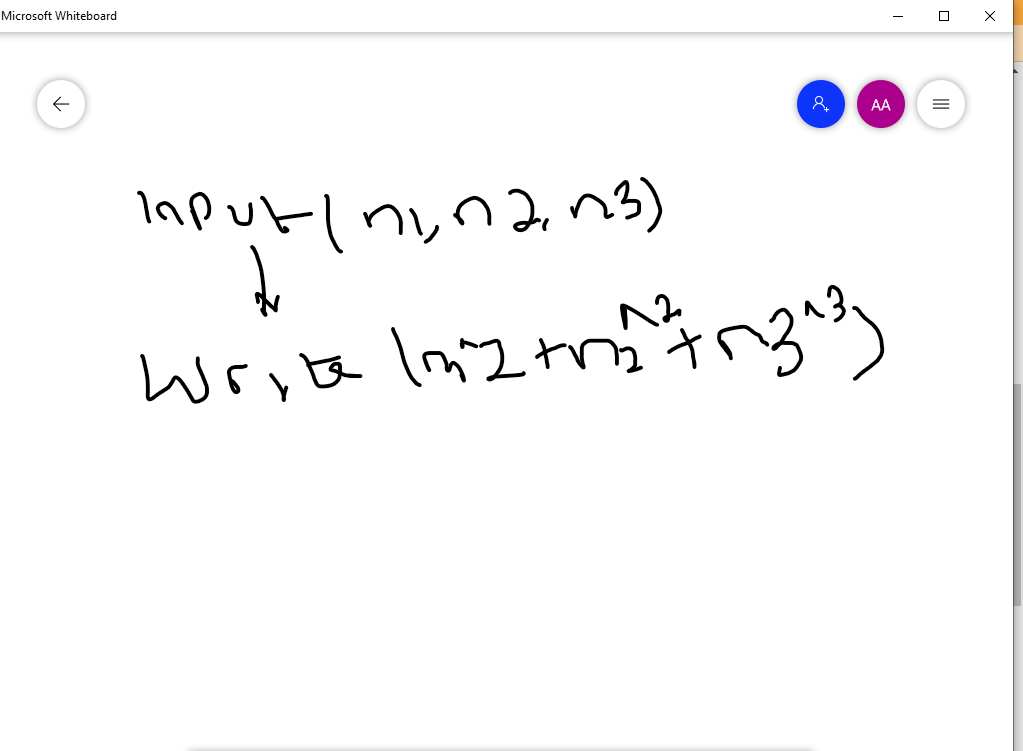 Microsoft Whiteboard
AA
Input(n1, n2, n3)
Write (n^2+n2^n2+n3^n3)